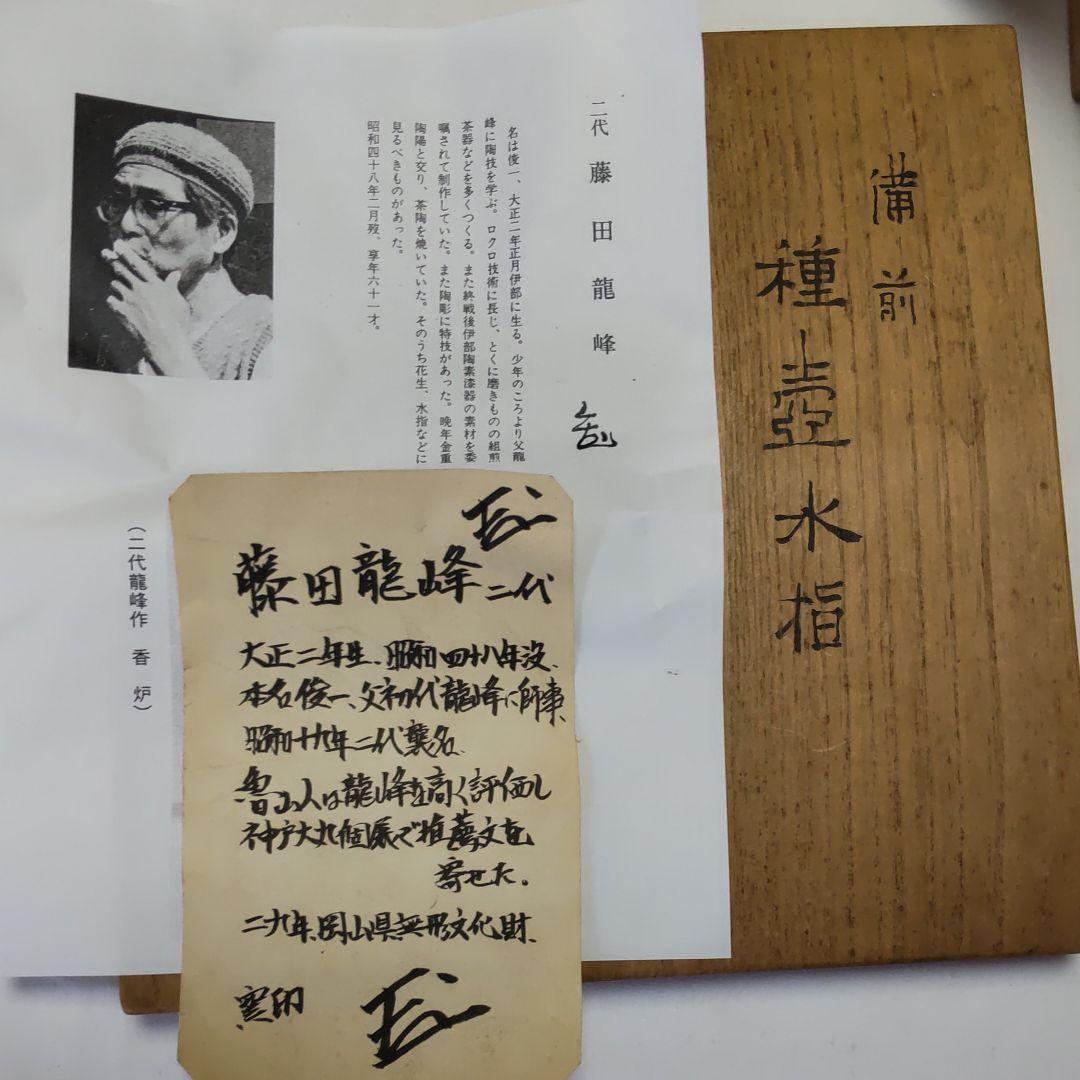 備前
種壺水指
二代 藤田龍峰
名は俊一、大正二年正月伊部に生る。少年のころより父龍
峰に陶技を学ぶ。ロクロ技術に長じ、とくに磨きものの組煎
茶器などを多くつくる。また終戦後伊部陶素漆器の素材を委
嘱されて制作していた。また陶彫に特技があった。晩年金重
陶陽と交り、茶陶を焼いていた。そのうち花生、水指などに
見るべきものがあった。
昭和四十八年二月歿、享年六十一才。
(二代龍峰作 香炉)
藤田龍峰二代
大正二年生、昭和四十八年没、
本名俊一、父初代龍峰に師事、
昭和十九年二代襲名、
魯山人は龍峰を高く評価し
神戸大丸個展で推薦文を
寄せた。
二九年、岡山県無形文化財、
窯印